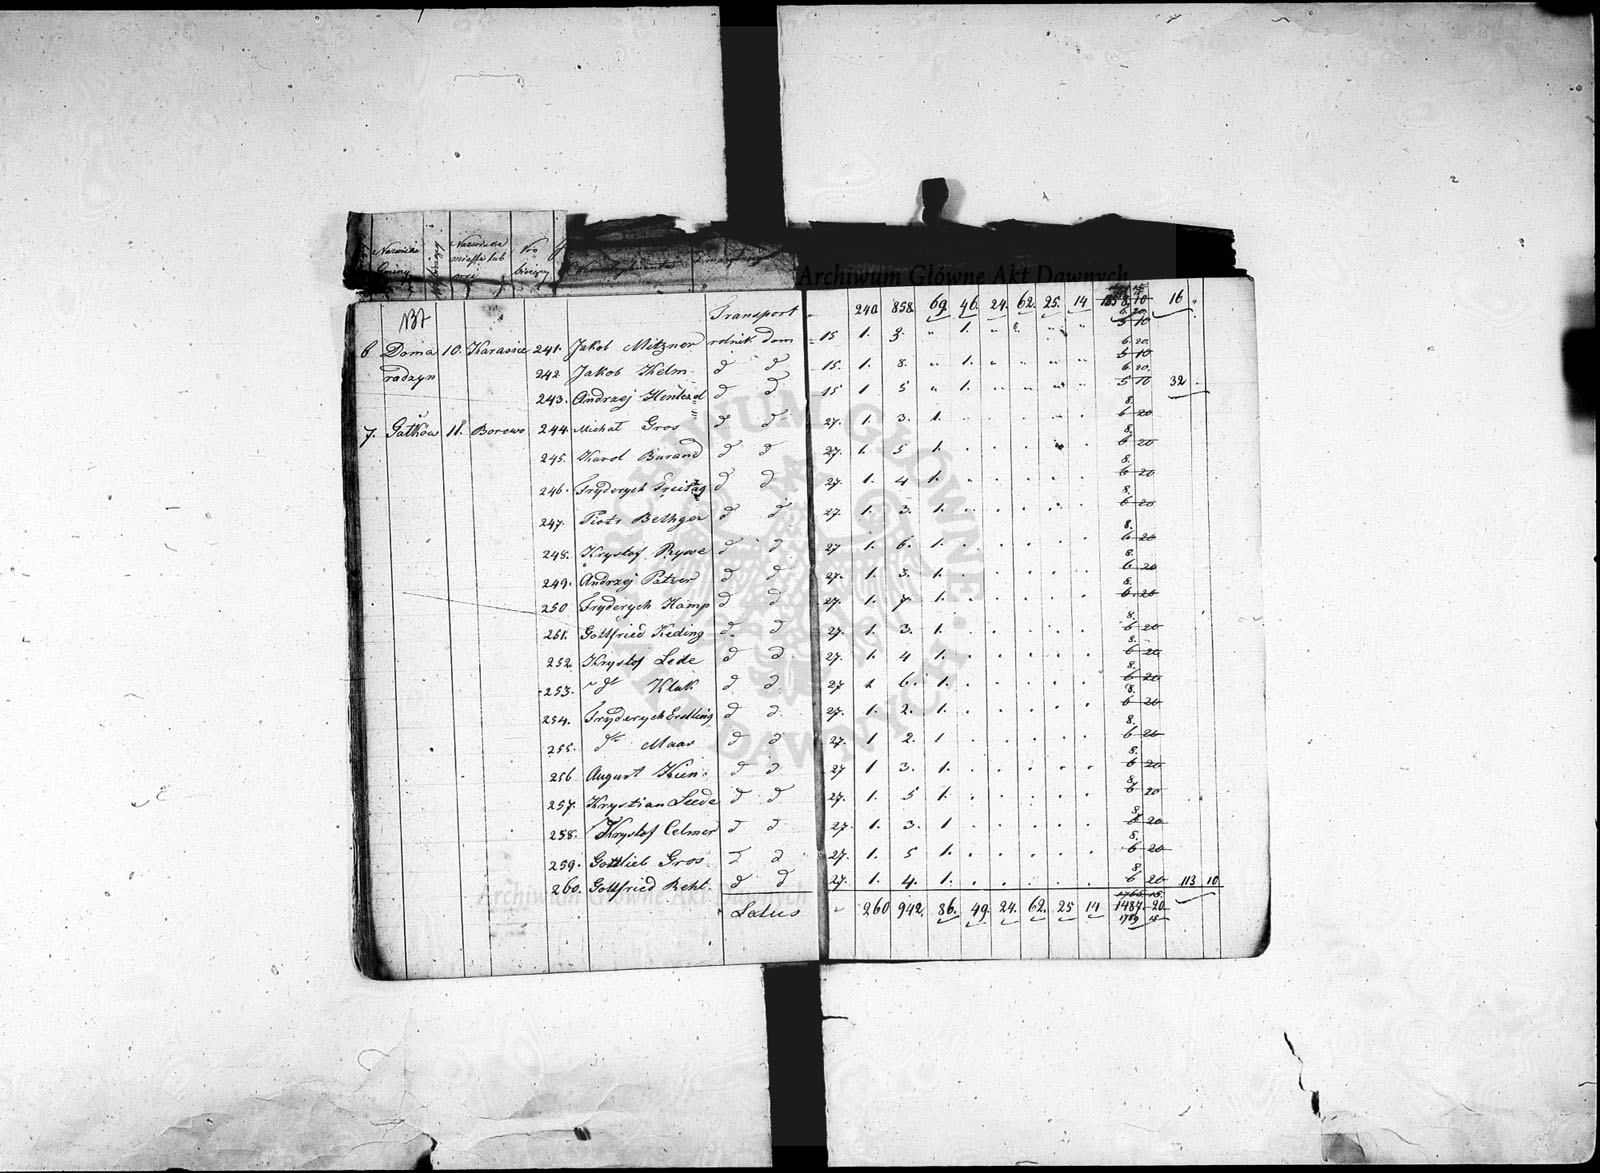 Nazwisko Gminy
Nazwiska miasta lub wsi
Nro bieżący
Archiwum Główne Akt Dawnych
137
Transport 240. 858. 69. 46. 24. 62. 25. 14 16 "
6 Doma 10. Karasice 241. Jakob Mitzner rolnik dom 15 1. 3. " 1.
radzyn 242 Jakob Helm d d 15. 1. 8. " 1. 6 20. 5 10
243. Andrzej d d 15 1 5 " 1. 6 20. 5 10 32
7. Gatków 11. Borowo 244. Michał Gros d d 27. 1. 3. 1. 8. 6 20
245. Karol Burand d d 27. 1. 5 1. 8. 6 20
246. Fryderych Freitag d d 27. 1. 4 1. 8. 6 20
247. Piotr Bethger d d 27. 1. 3. 1. 8. 6 20
248. Krystof Rywe d d 27 1. 6. 1. 8. 6 20
249. Andrzej Patzer d d 27. 1. 3. 1. 8. 6 20
250 Fryderych Kamp d d 27. 1. 7. 1. 8. 6 20
251. Gottfried Keding d d 27. 1. 3. 1. 8. 6 20
252 Krystof Lede d d 27. 1. 4 1. 8. 6 20
253. dt Klak d d 27 1 6. 1. 8. 6 20
254. Fryderych Erdling d d 27. 1. 2. 1. 8. 6 20
255. dt Maas d d 27. 1 2. 1 8. 6 20
256 August Kien d d 27 1 3. 1. 8. 6 20
257. Krystian Leede d d 27. 1. 5 1. 8. 6 20
258. Krystof Celmer d d 27. 1. 3. 1 8. 6 20
259. Gottlieb Gros d d 27. 1. 5 1. 8. 6 20
260. Gottfried Rehl. d d 27. 1. 4. 1. 8. 6 20 113 10
Archiwum Główne Akt Dawnych
Latus " 260 942. 86. 49. 24. 62. 25 14 1484. 20
1789 15
ARCHIWUM GŁÓWNE AKT DAWNYCH